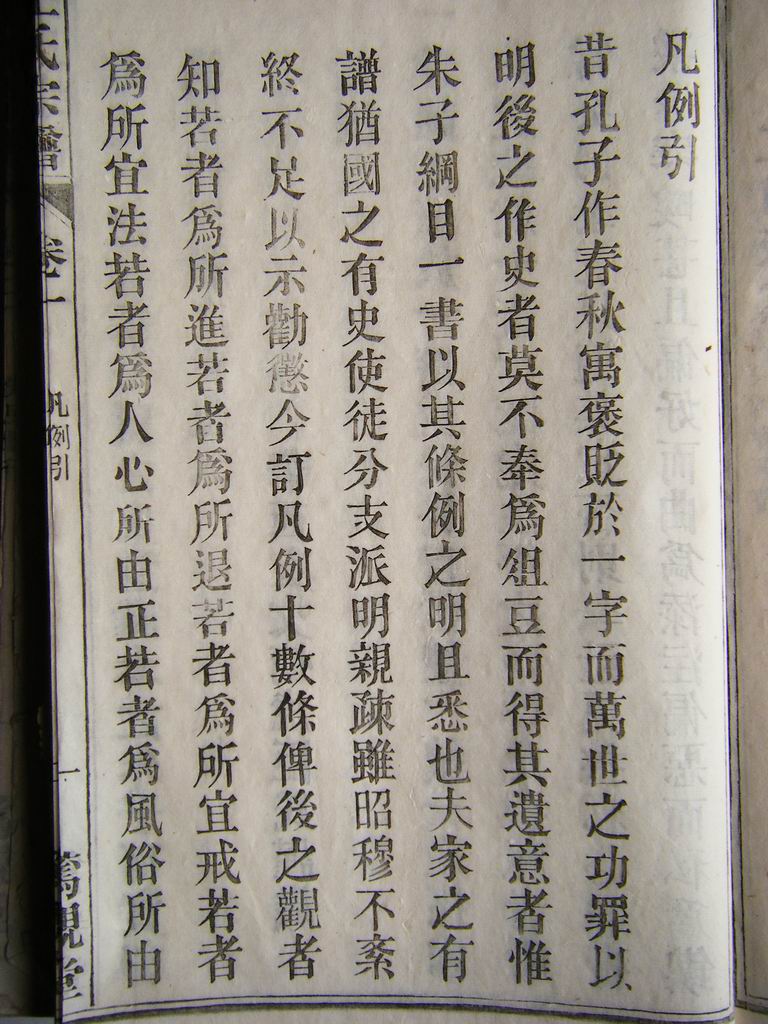 凡例引
昔孔子作春秋寓褒貶於一字而萬世之功罪以
明後之作史者莫不奉爲俎豆而得其遺意者惟
朱子綱目一書以其條例之明且悉也夫家之有
譜猶國之有史使徒分支派明親疎雖昭穆不紊
終不足以示勸懲今訂凡例十數條俾後之觀者
知若者爲所進若者爲所退若者爲所宜戒若者
爲所宜法若者爲人心所由正若者爲風俗所由
氏宗譜 卷一 凡例引 一 篤親堂